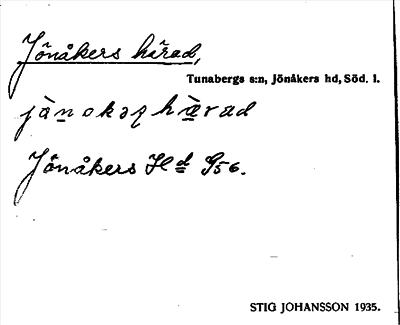 Jönåkers härad,
Tunabergs s:n, Jönåkers hd, Söd. l.
Jönåkers Hd G56.
STIG JOHANSSON 1935.